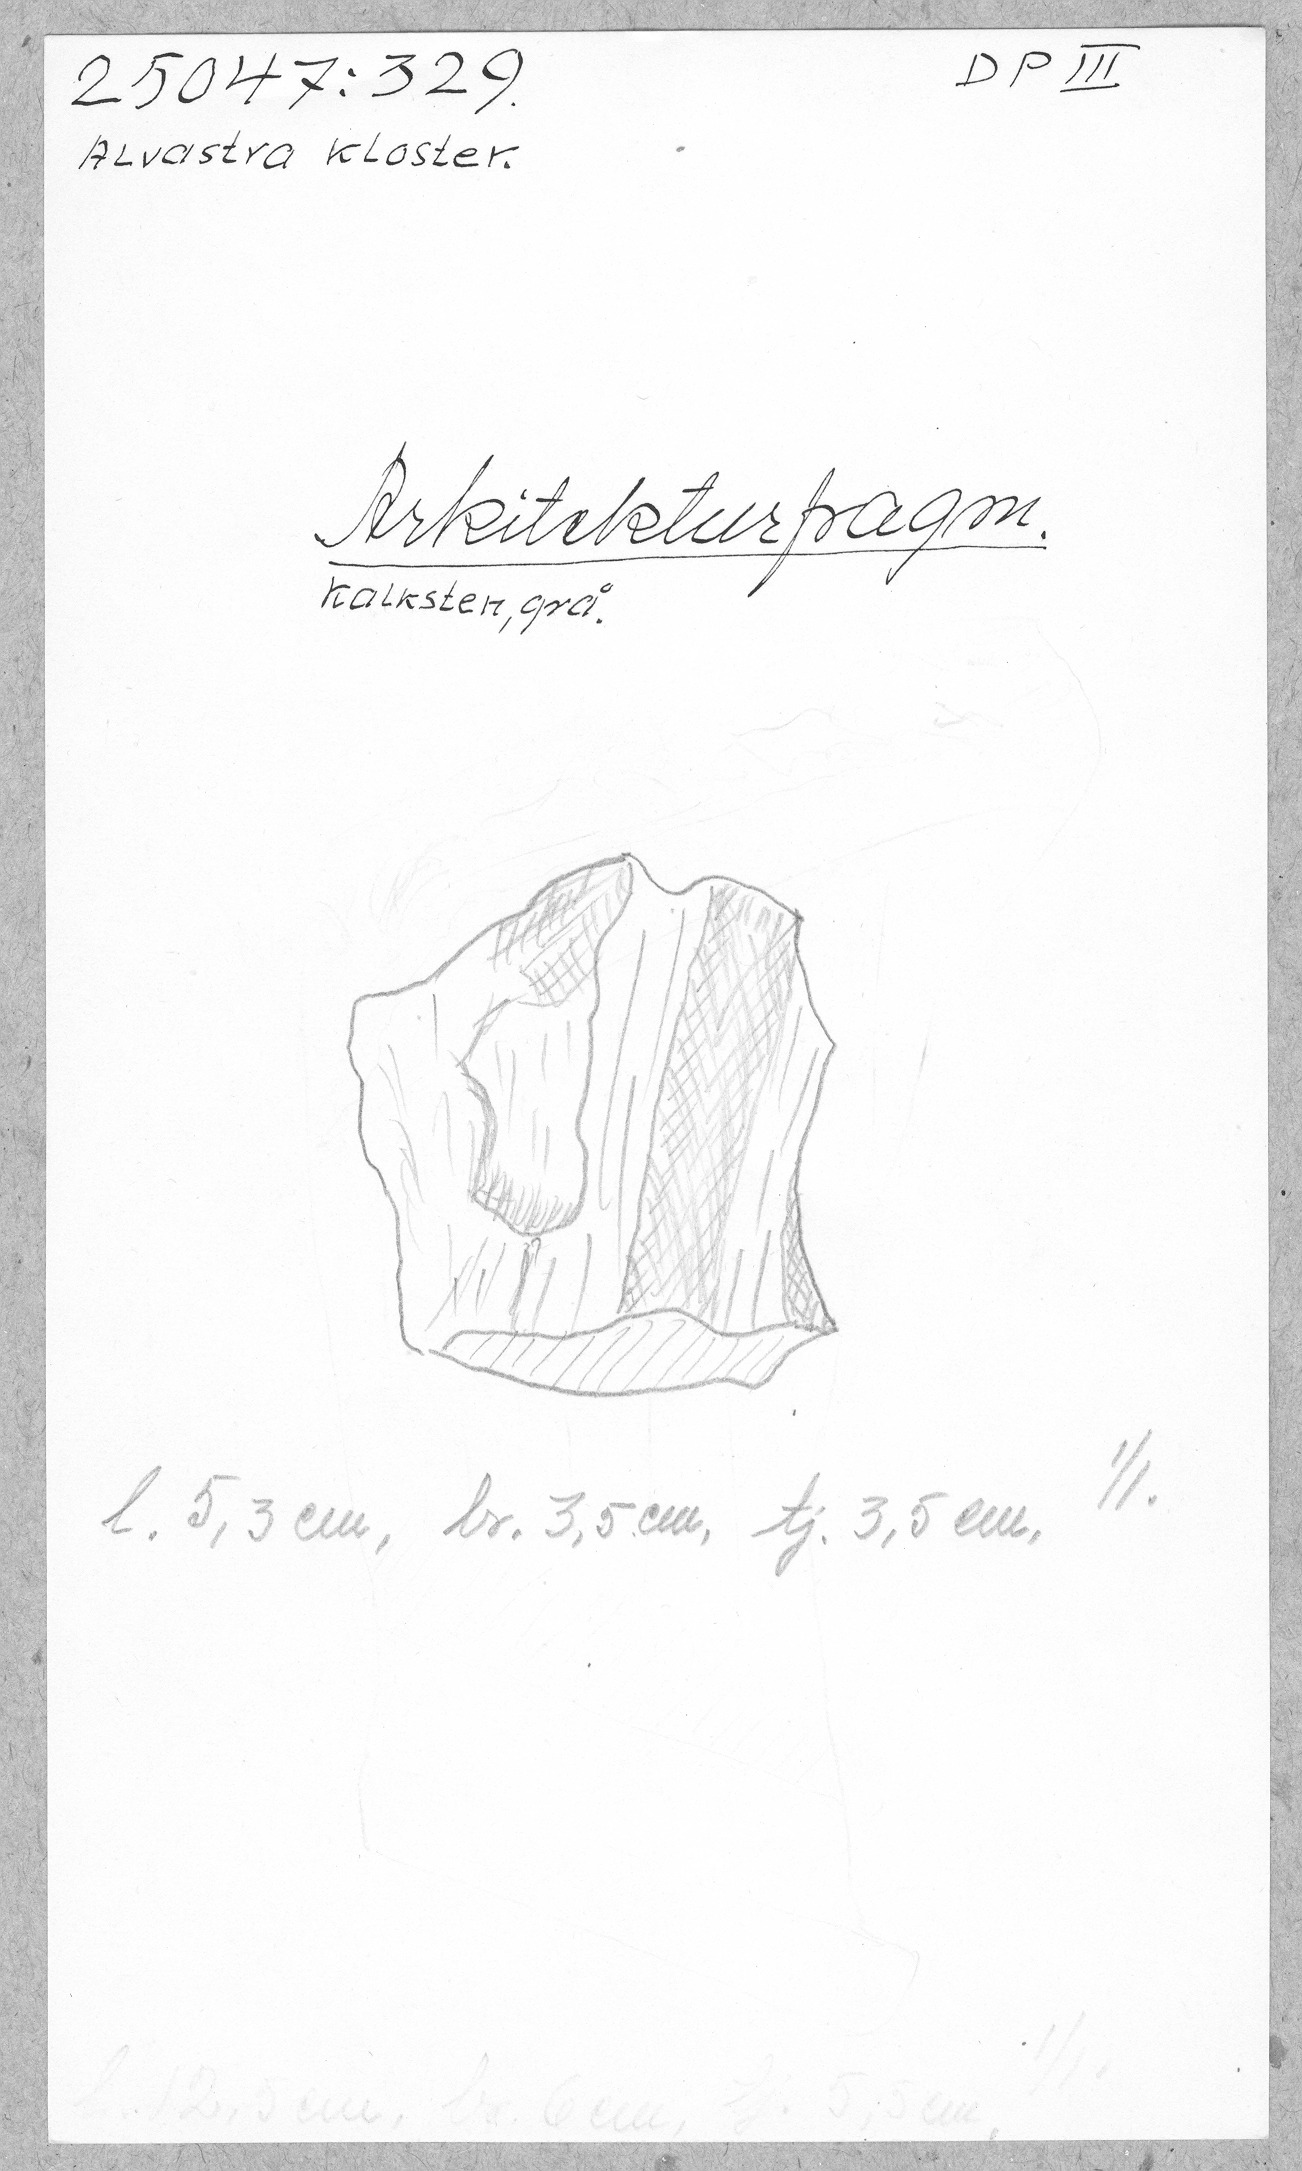 25047:329.
DP III
Alvastra kloster.
Arkitekturfragm.
Kalksten, grå.
l. 5,3 cm, br. 3,5 cm, tj. 3,5 cm. 1/1.
l. 12,5 cm, br. 6 cm, tj. 5,5 cm. 1/1.